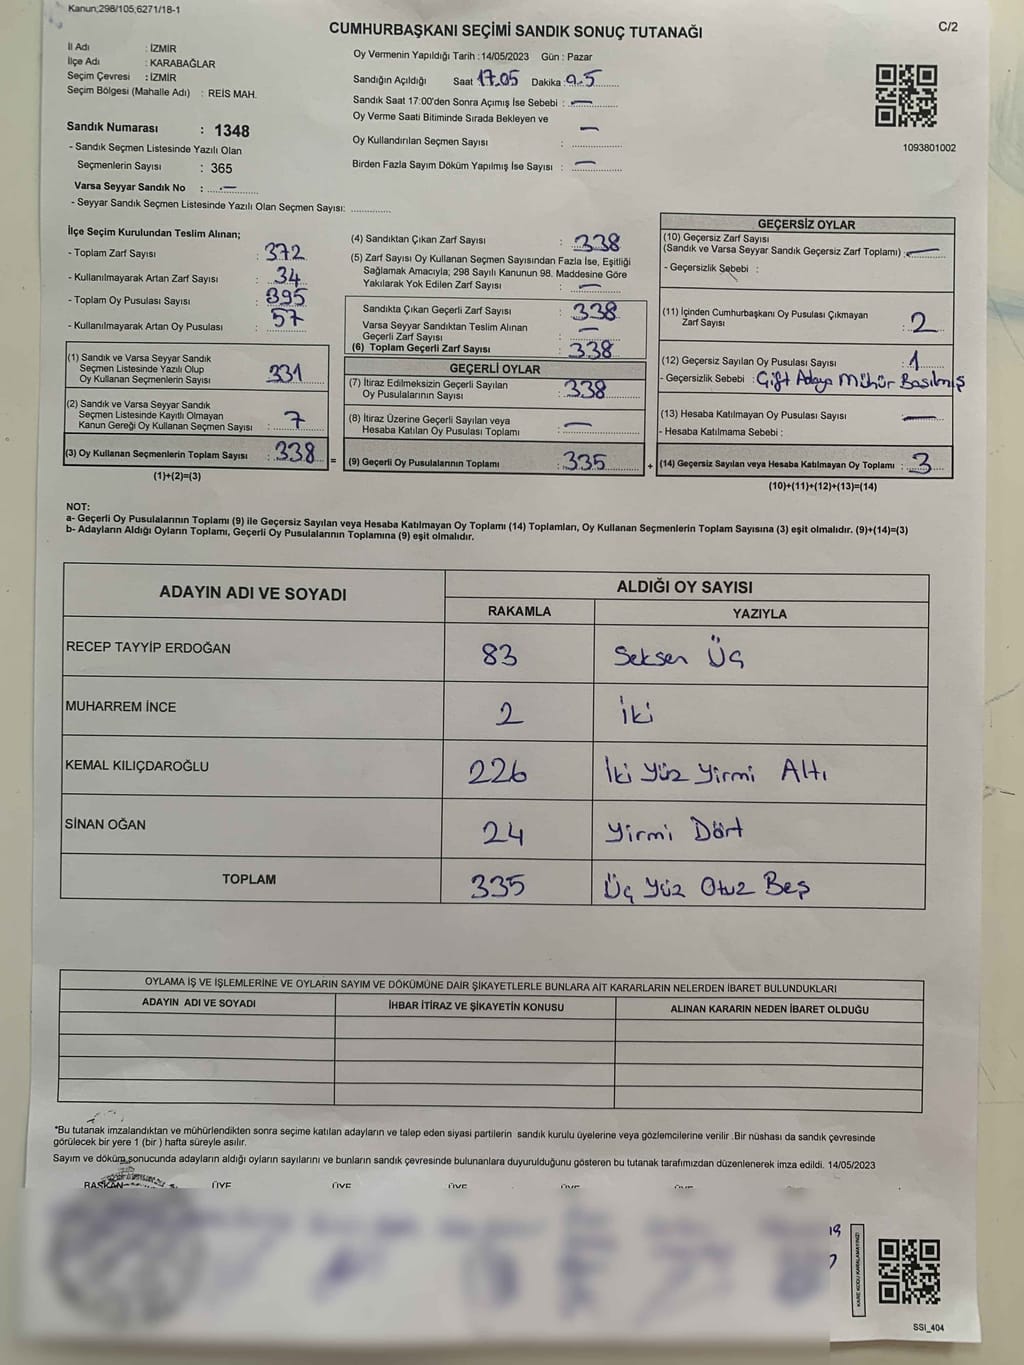 Kanun;298/105;6271/18-1
CUMHURBAŞKANI SEÇİMİ SANDIK SONUÇ TUTANAĞI
C/2
İl Adı : İZMİR
İlçe Adı : KARABAĞLAR
Seçim Çevresi : İZMİR
Seçim Bölgesi (Mahalle Adı) : REİS MAH.
Sandık Numarası : 1348
- Sandık Seçmen Listesinde Yazılı Olan
Seçmenlerin Sayısı : 365
Varsa Seyyar Sandık No : —
- Seyyar Sandık Seçmen Listesinde Yazılı Olan Seçmen Sayısı: ..............
Oy Vermenin Yapıldığı Tarih : 14/05/2023 Gün : Pazar
Sandığın Açıldığı Saat 17.05 Dakika
Sandık Saat 17:00'den Sonra Açımış İse Sebebi : —
Oy Verme Saati Bitiminde Sırada Bekleyen ve
Oy Kullandırılan Seçmen Sayısı : —
Birden Fazla Sayım Döküm Yapılmış İse Sayısı : —
1093801002
İlçe Seçim Kurulundan Teslim Alınan;
- Toplam Zarf Sayısı : 372
- Kullanılmayarak Artan Zarf Sayısı : 34
- Toplam Oy Pusulası Sayısı : 395
- Kullanılmayarak Artan Oy Pusulası : 57
(1) Sandık ve Varsa Seyyar Sandık
Seçmen Listesinde Yazılı Olup
Oy Kullanan Seçmenlerin Sayısı : 331
(2) Sandık ve Varsa Seyyar Sandık
Seçmen Listesinde Kayıtlı Olmayan
Kanun Gereği Oy Kullanan Seçmen Sayısı : 7
(3) Oy Kullanan Seçmenlerin Toplam Sayısı : 338 =
(1)+(2)=(3)
(4) Sandıktan Çıkan Zarf Sayısı : 338
(5) Zarf Sayısı Oy Kullanan Seçmen Sayısından Fazla İse, Eşitliği
Sağlamak Amacıyla; 298 Sayılı Kanunun 98. Maddesine Göre
Yakılarak Yok Edilen Zarf Sayısı : —
Sandıkta Çıkan Geçerli Zarf Sayısı : 338
Varsa Seyyar Sandıktan Teslim Alınan
Geçerli Zarf Sayısı : —
(6) Toplam Geçerli Zarf Sayısı : 338
GEÇERLİ OYLAR
(7) İtiraz Edilmeksizin Geçerli Sayılan
Oy Pusulalarının Sayısı : 338
(8) İtiraz Üzerine Geçerli Sayılan veya
Hesaba Katılan Oy Pusulası Toplamı : —
(9) Geçerli Oy Pusulalarının Toplamı : 335 +
GEÇERSİZ OYLAR
(10) Geçersiz Zarf Sayısı
(Sandık ve Varsa Seyyar Sandık Geçersiz Zarf Toplamı) : —
- Geçersizlik Sebebi :
(11) İçinden Cumhurbaşkanı Oy Pusulası Çıkmayan
Zarf Sayısı : 2
(12) Geçersiz Sayılan Oy Pusulası Sayısı : 1
- Geçersizlik Sebebi : Çift Adaya Mühür Basılmış
(13) Hesaba Katılmayan Oy Pusulası Sayısı : —
- Hesaba Katılmama Sebebi :
(14) Geçersiz Sayılan veya Hesaba Katılmayan Oy Toplamı : 3
(10)+(11)+(12)+(13)=(14)
NOT:
a- Geçerli Oy Pusulalarının Toplamı (9) ile Geçersiz Sayılan veya Hesaba Katılmayan Oy Toplamı (14) Toplamları, Oy Kullanan Seçmenlerin Toplam Sayısına (3) eşit olmalıdır. (9)+(14)=(3)
b- Adayların Aldığı Oyların Toplamı, Geçerli Oy Pusulalarının Toplamına (9) eşit olmalıdır.
ADAYIN ADI VE SOYADI
ALDIĞI OY SAYISI
RAKAMLA YAZIYLA
RECEP TAYYİP ERDOĞAN 83 Seksen Üç
MUHARREM İNCE 2 İki
KEMAL KILIÇDAROĞLU 226 İki Yüz Yirmi Altı
SİNAN OĞAN 24 Yirmi Dört
TOPLAM 335 Üç Yüz Otuz Beş
OYLAMA İŞ VE İŞLEMLERİNE VE OYLARIN SAYIM VE DÖKÜMÜNE DAİR ŞİKAYETLERLE BUNLARA AİT KARARLARIN NELERDEN İBARET BULUNDUKLARI
ADAYIN ADI VE SOYADI İHBAR İTİRAZ VE ŞİKAYETİN KONUSU ALINAN KARARIN NEDEN İBARET OLDUĞU
*Bu tutanak imzalandıktan ve mühürlendikten sonra seçime katılan adayların ve talep eden siyasi partilerin sandık kurulu üyelerine veya gözlemcilerine verilir .Bir nüshası da sandık çevresinde
görülecek bir yere 1 (bir ) hafta süreyle asılır.
Sayım ve döküm sonucunda adayların aldığı oyların sayılarını ve bunların sandık çevresinde bulunanlara duyurulduğunu gösteren bu tutanak tarafımızdan düzenlenerek imza edildi. 14/05/2023
BAŞKAN ÜYE ÜYE ÜYE ÜYE ÜYE
KARE KODU KARALAMAYINIZ!
SSI_404